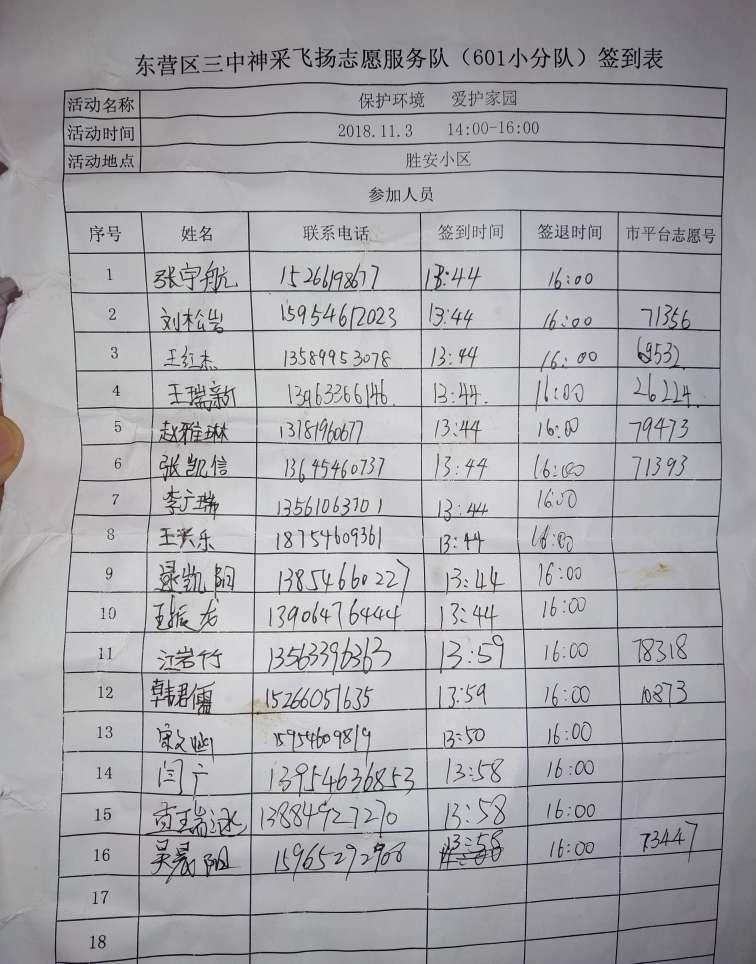 东营区三中神采飞扬志愿服务队（601小分队）签到表
活动名称 保护环境 爱护家园
活动时间 2018.11.3 14:00-16:00
活动地点 胜安小区
参加人员
序号 姓名 联系电话 签到时间 签退时间 市平台志愿号
1 张宇航 15266198677 13:44 16:00
2 刘松岩 15954612023 13:44 16:00 71356
3 王红杰 13589953078 13:44 16:00 69532
4 王瑞新 13963366146. 13:44. 16:00 26224.
5 赵雅琳 13781960677 13:44 16:00 79473
6 张凯信 13645460737 13:44 16:00 71393
7 李广瑞 13561063701 13:44 16:00
8 王兴乐 18754609361 13:44 16:00
9 凯阳 13854660227 13:44 16:00
10 王振龙 13906476444 13:44 16:00
11 江岩竹 13563396363 13:59 16:00 78318
12 韩君儒 15266051635 13:59 16:00 10873
13 宋文 15954609819 13:50 16:00
14 闫广 13954636853 13:58 16:00
15 瑞泳 13884927270 13:58 16:00
16 吴晨阳 15965292908 13:58 16:00 73447
17
18